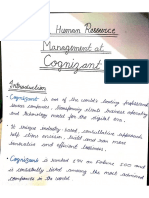 Human Resource
Management at
Cognizant
Introduction
• Cognizant is one of the world's leading professional
services companies, transforming clients business, operating
and technology model for the digital era.
• It's unique industry-based, consultative approach
helps clients envision, build and run more
innovative and efficient businesses.
• Cognizant is ranked 194 on Fortune 500 and
is constantly listed among the most admired
companies in the world.